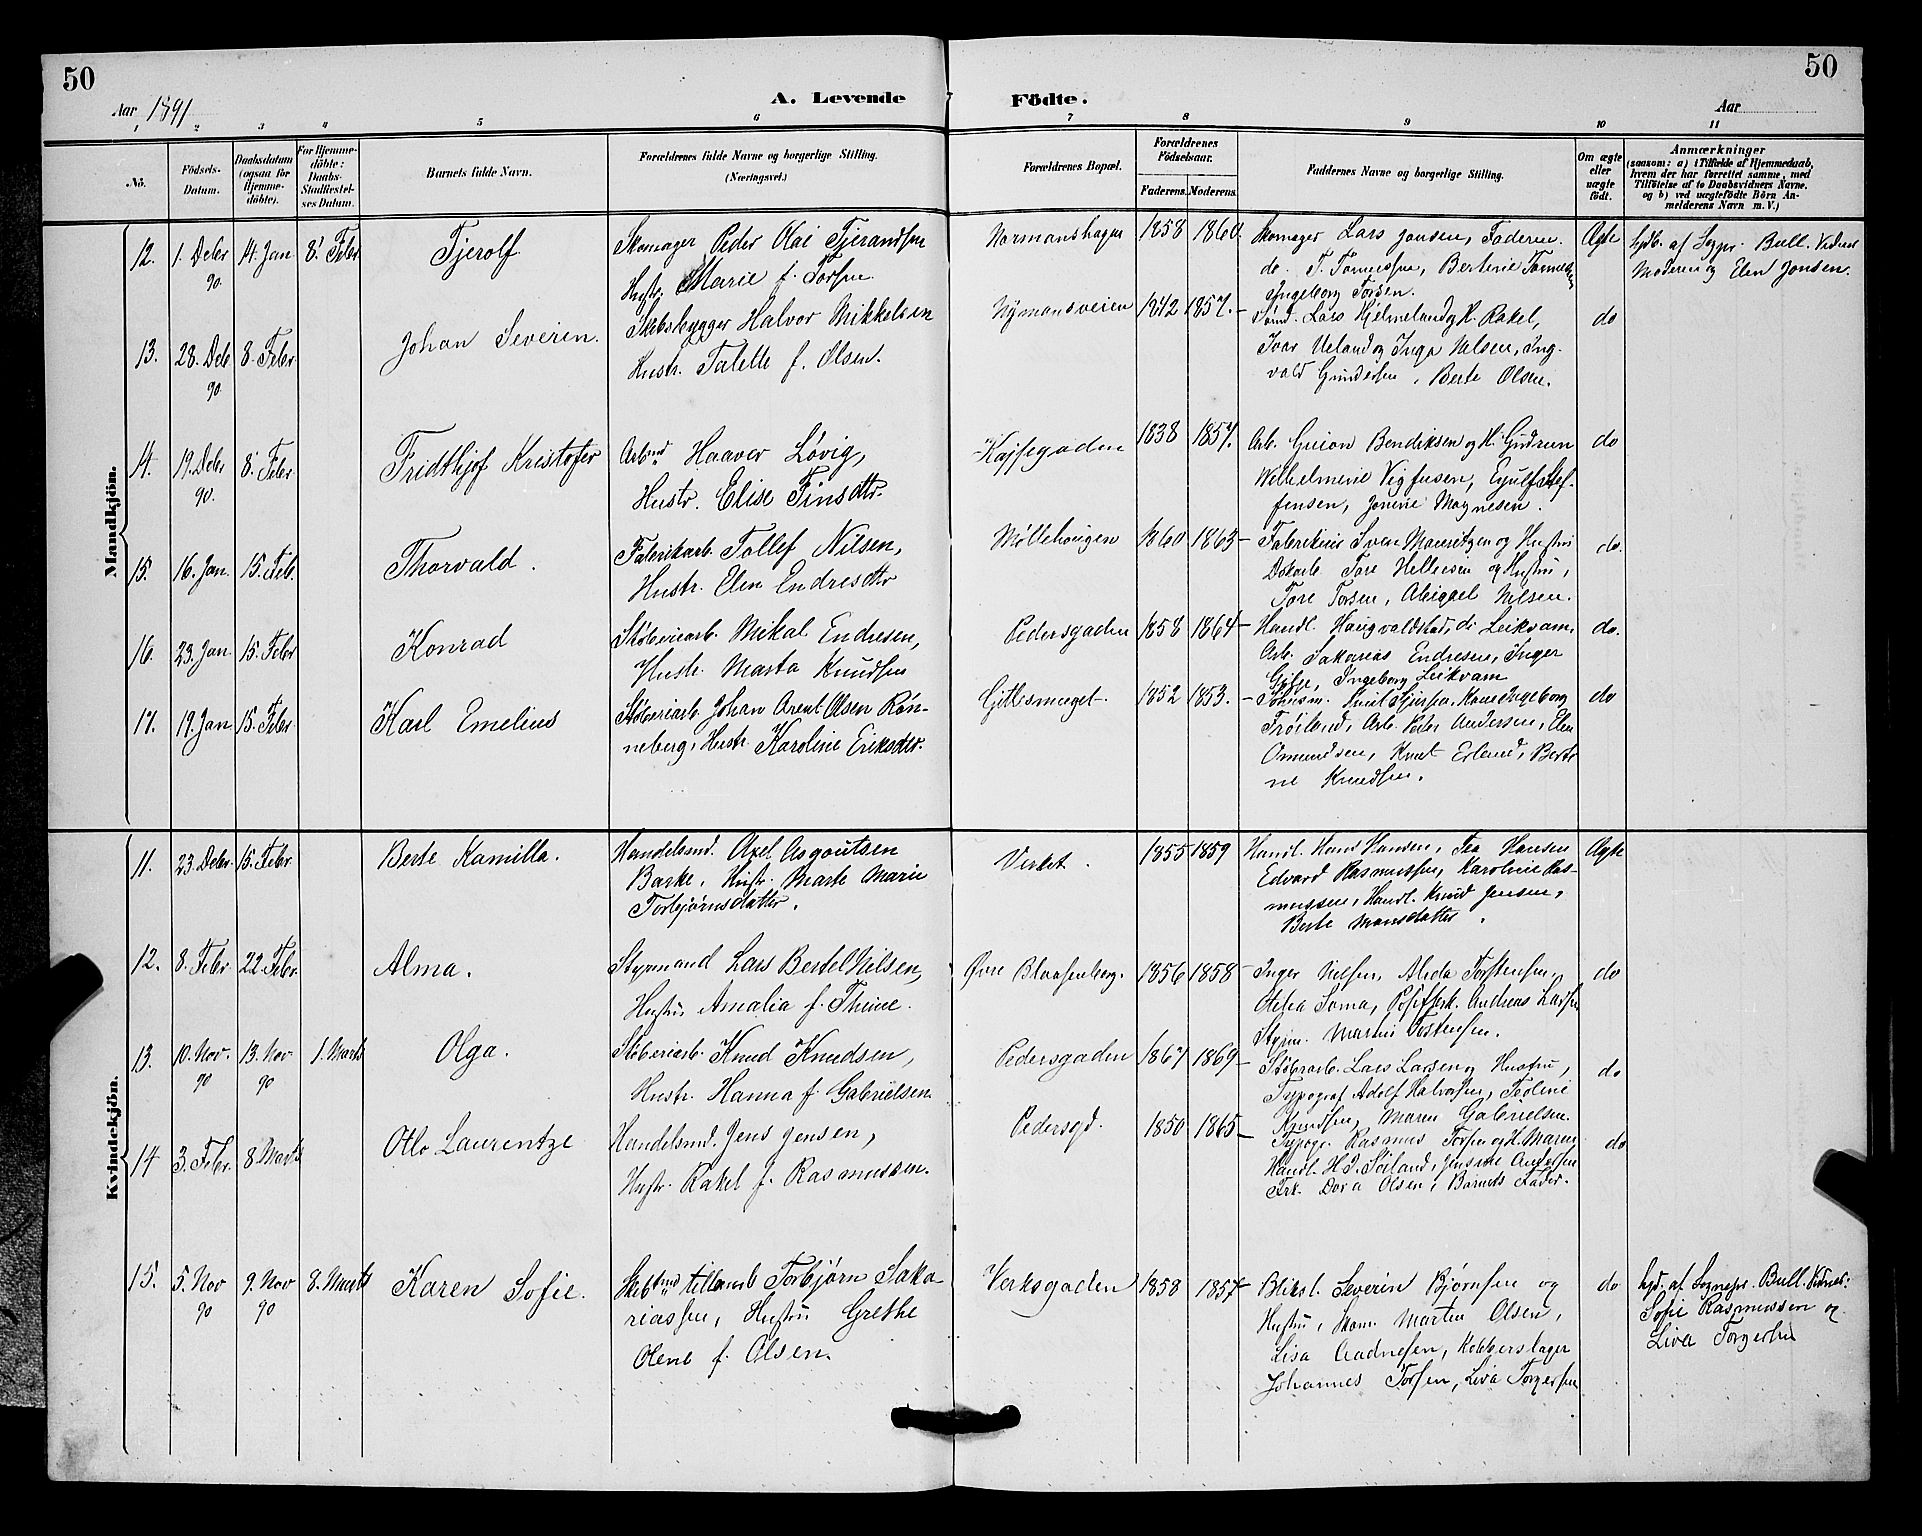 50
Aar 1891
A. Levende Födte.
Aar
50
1 2 3 4 5 6 7 8 9 10 11
No.
Födsels-Datum.
Daabsdatum (ogsaa for Hjemme-döbte).
For Hjemme-döbte: Daabs-Stadfæstel-ses Datum.
Barnets fulde Navn.
Forældrenes fulde Navne og borgerlige Stilling. (Næringsvei.)
Forældrenes Bopæl.
Forældrenes Födselsaar.
Faderens. Moderens.
Faddernes Navne og borgerlige Stilling.
Om ægte eller uægte födt.
Anmærkninger
(saasom: a) i Tilfælde af Hjemmedaab, hvem der har forrettet samme, med Tilföielse af to Daabsvidners Navne. og b) ved uægtefödte Börn An-melderens Navn m. V.)
Mandkjön.
12. 1. Debr 90 14. Jan 8. Febr Tjerolf
Skomager Peder Olai Tjerandsen
Hustr. Marie f. Torsen
Normanshagen 1858 1860.
Skomager Lars Jonsen, Faderen.
do. T. Tønnessen, Berterie Tønnesen
Ingeborg Torsen.
Ægte
hjdb. af Sogpr. Bull. Vidner
Moderen og Elen Jonsen.
13. 28. Deb 90 8. Febr Johan Severin.
Skibsbygger Halvor Mikkelsen
Hustr. Talette f. Olsen.
Nymansveien 1842 1857.
Sømd. Lars Hjelmeland og H. Rakel,
Ivar Ueland og Inga Nilsen, Ing-
vald Gundersen, Berte Olsen.
do
14. 19. Debr 90. 8. Febr Fridthjof Kristofer
Arbmd Haaver Løvig,
Hustr. Elise Finsdtr.
Kajsegaden 1838 1857.
Arb. Guion Bendiksen og H. Gudrun
Wilhelmine Vigfusen, Ejulf Stef-
fensen, Jonine Magnesen.
do
15. 16. Jan. 15. Feb. Thorvald.
Fabrikarb. Tollef Nilsen,
Hustr. Elen Endresdtr
Møllehougen 1860 1863
Fabrikeier Sven Mauritzen og Hustru
Dokarb. Tore Helliesen og Hustru,
Tore Torsen, Abigael Nilsen.
do.
16. 23. Jan. 15. Febr Konrad
Støberiarb. Mikal Endresen,
Hustr. Marta Knudsen
Pedersgaden 1858 1864
Handl. Haugvaldstad, di Leikvam,
Arb. Sakarias Endresen, Inger
Gilje, Ingeborg Leikvam
do.
17. 19. Jan 15. Febr Karl Emelius
Støberiarb. Johan Arent Olsen Røn-
neberg, Hustr. Karoline Eriksdtr.
Gjetlesmuget. 1852 1853.
Frøiland, Arb. Peder Andersen, Elen
Omundsen, Knut Erland, Berte
ne Knudsen.
do
Kvindekjön.
11. 23. Debr 15. Febr. Berte Kamilla.
Handelsmd. Axel Asgoutsen
Barke, Hustr. Marte Marie
Torbjørnsdatter.
Verket. 1855 1859
Handl. Hans Hansen, Tea Hansen
Edvard Rasmussen, Karoline Ras-
mussen, Handl. Knud Jensen,
Berte Mansdatter.
Ægte
12. 8. Febr. 22. Febr. Alma.
Styrmand Lars Bertel Nilsen,
Hustru, Amalia f. Thime.
Øvre Blaasenborg. 1856 1858
Inger Nilsen, Alida Torstensen,
Soma, Andreas Larsen
Styrm. Martin Tostensen.
do
13. 10. Nov. 90 13. Nov 90 1. Marts Olga.
Støberiarb. Knud Knudsen,
Hustr. Hanna f. Gabrielsen.
Pedersgaden 1867 1869
Støberarb. Lars Larsen og Hustru,
Typograf Adolf Halvorsen, Teoline
Knudsen, Maren Gabrielsen.
do
14 3. Febr. 8. Marts Otto Laurentze
Handelsmd. Jens Jensen,
Hustr. Rakel f. Rasmussen.
Pedersgd. 1850 1865
Typogr. Rasmus Torsen og H. Maren,
Handl. H. J. Søiland, Jensine Andersen
Frk. Dora Olsen, Barnets Fader.
do
15. 5. Nov 90 9. Nov 90 8. Marts Karen Sofie.
Skibstømmermd Torbjørn Saka-
riassen, Hustru Grethe
Olene f. Olsen.
Verksgaden 1858 1857
Bliksl. Severin Bjørnsen og
Hustru, Skom. Martin Olsen,
Lisa Aadnesen, Kobberslager
Johannes Torsen, Liva Torgersen
do
hjd. af Sognepr. Bull. Vidnes:
Sofie Rasmussen og
Liva Torgersen